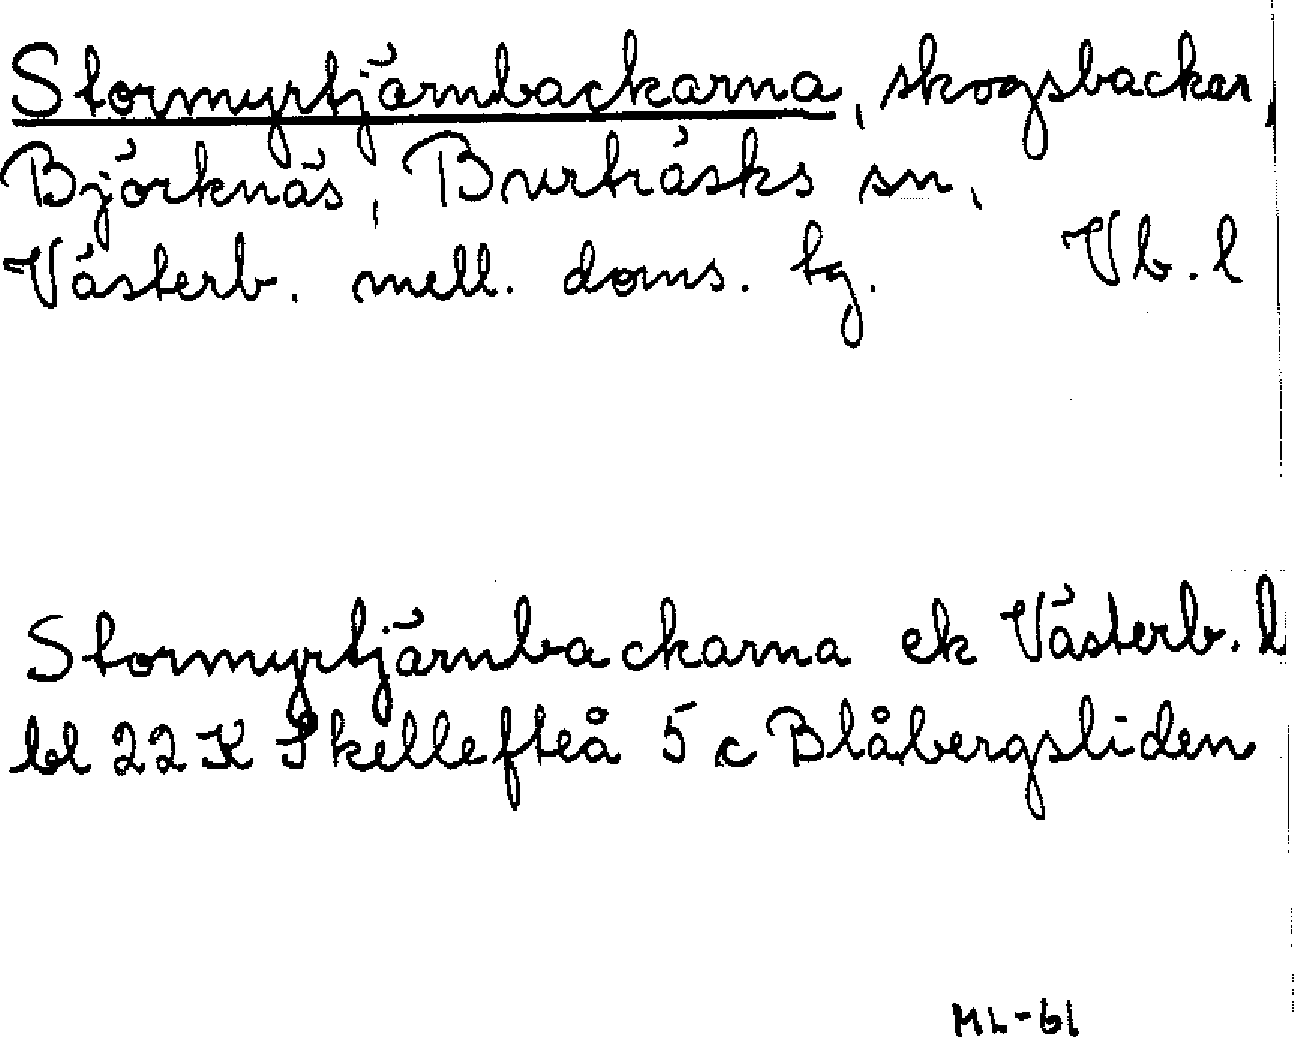 Stormyrtjärnbackarna, skogsbackar,
Björknäs, Burträsks sn,
Västerb. mell. doms. tg. Vb. l
Stormyrtjärnbackarna ek Västerb. l
bl 22 K Skellefteå 5 c Blåbergsliden
ML-61